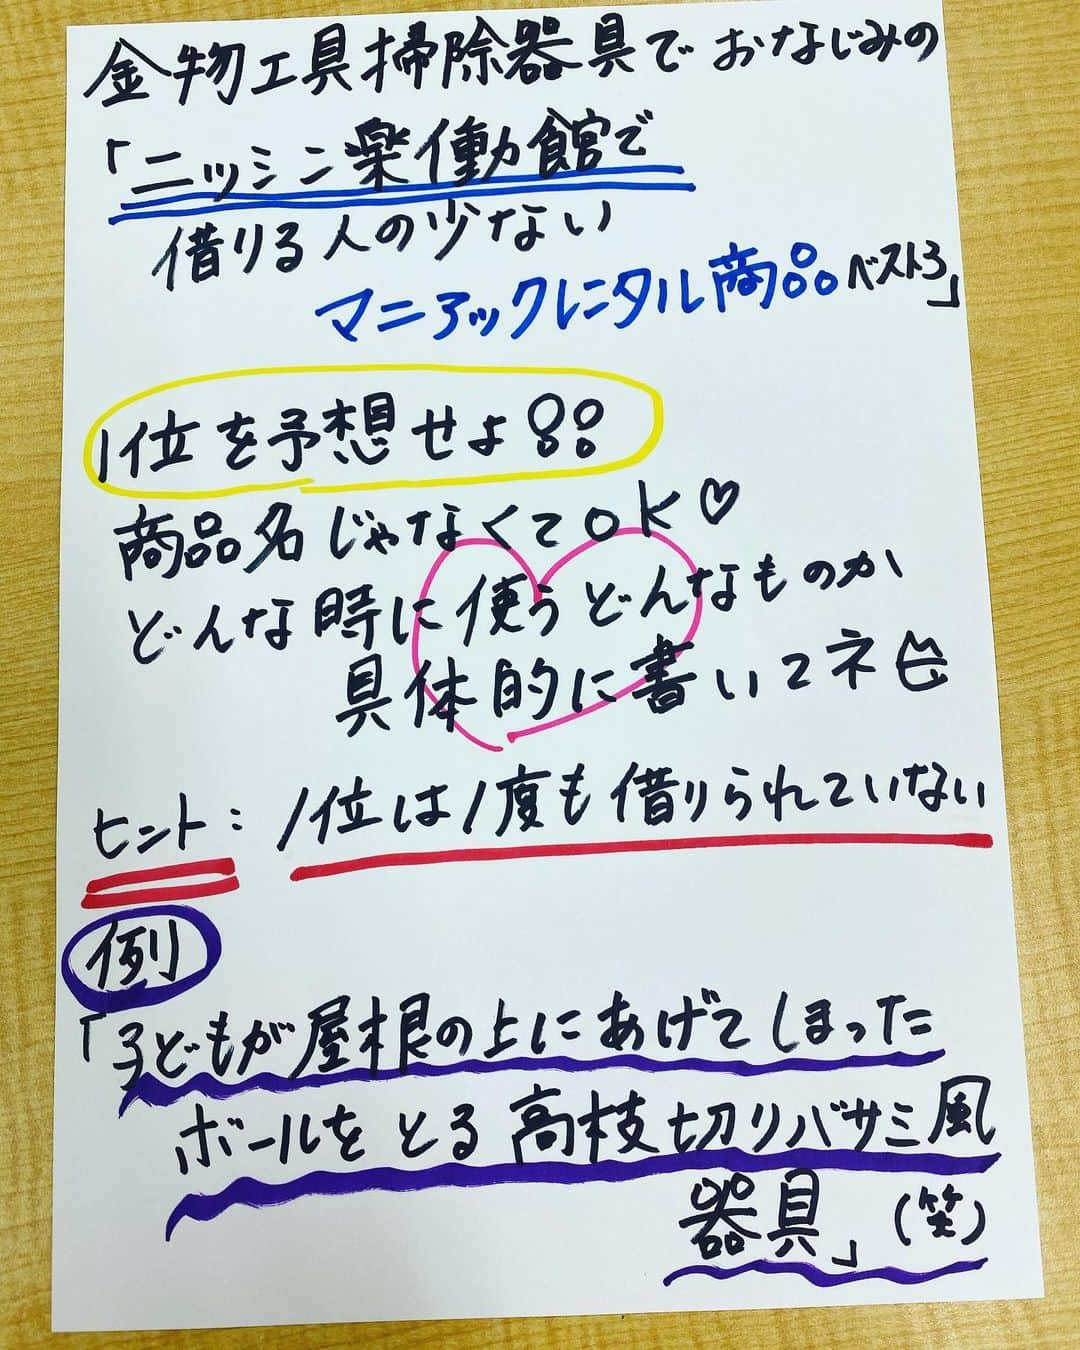 金物工具掃除器具でおなじみの
「ニッシン楽働館で
借りる人の少ない
マニアックレンタル商品ベスト3」
1位を予想せよ!!
商品名じゃなくてOK♡
どんな時に使うどんなものか
具体的に書いてネ
ヒント：1位は1度も借りられていない
例
「子どもが屋根の上にあげてしまった
ボールをとる高枝切りバサミ風
器具」(笑)